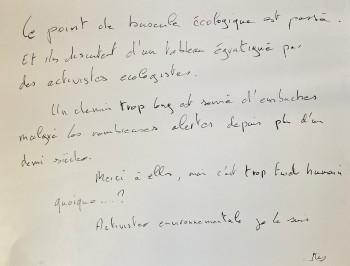 Le point de bascule écologique est passé.
Et ils discutent d'un tableau égratigné par
des activistes ecologistes.
Un chemin trop long et semé d'embuches
malgré les nombreuses alertes depuis plus d'un
demi siècle.
Merci à elles, mais c'est trop tard humain
quoique....?
Activistes environnementale je le suis